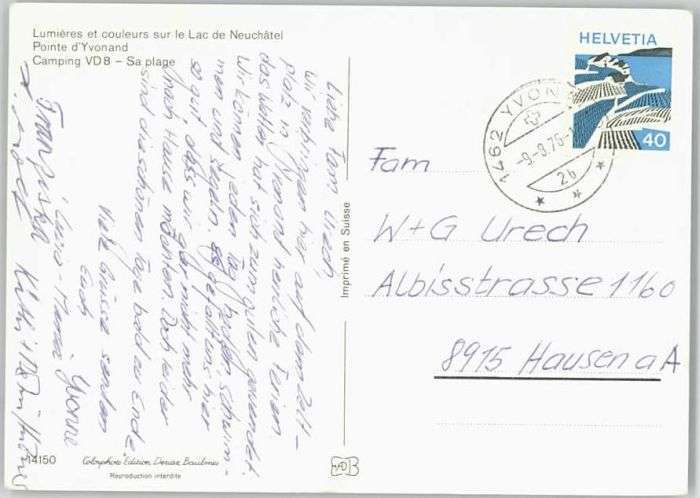 Lumières et couleurs sur le Lac de Neuchâtel
Pointe d'Yvonand
Camping VD 8 – Sa plage
HELVETIA
40
1462 YVON
-9.-9.76-1
2b
Liebe Fam Urech,
Wir verbringen hier auf dem Zelt-
platz in Yvonand herrliche Ferien
das Wetter hat sich zum guten gewendet.
Wir können jeden Tag surfen schwim-
men und segeln. Es gefällt uns hier
so gut, dass wir gar nicht mehr
nach Hause möchten. Doch leider
sind die schönen Tage bald zu Ende
Viele Grüsse senden
Euch
Yvonne
Maria
Franziska
Fam
W+G Urech
Albisstrasse 1160
8915 Hausen a A
Imprimé en Suisse
14150
Colorphoto Edition Denise Baulmes
Reproduction interdite